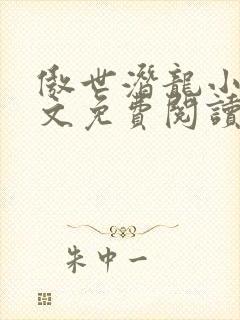 傲世潛龍小
文免費閱讀
朱中一